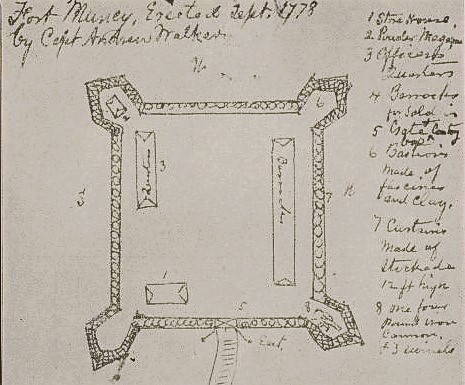 Fort Muncy, Erected Sept. 1778
by Capt Andrew Walker
1 Store House,
2 Powder Magazine
3 Officers
Quarters
4 Barracks
for Soldiers
5 Gate
6 Bastions
made of
fascines
and Clay,
7 Curtains
Made of
Stockade
12 ft high
8 one four
Pound iron
Cannon,
& 3 swivels
6
2
3
Quarters
Barracks
7
1
5
8
East